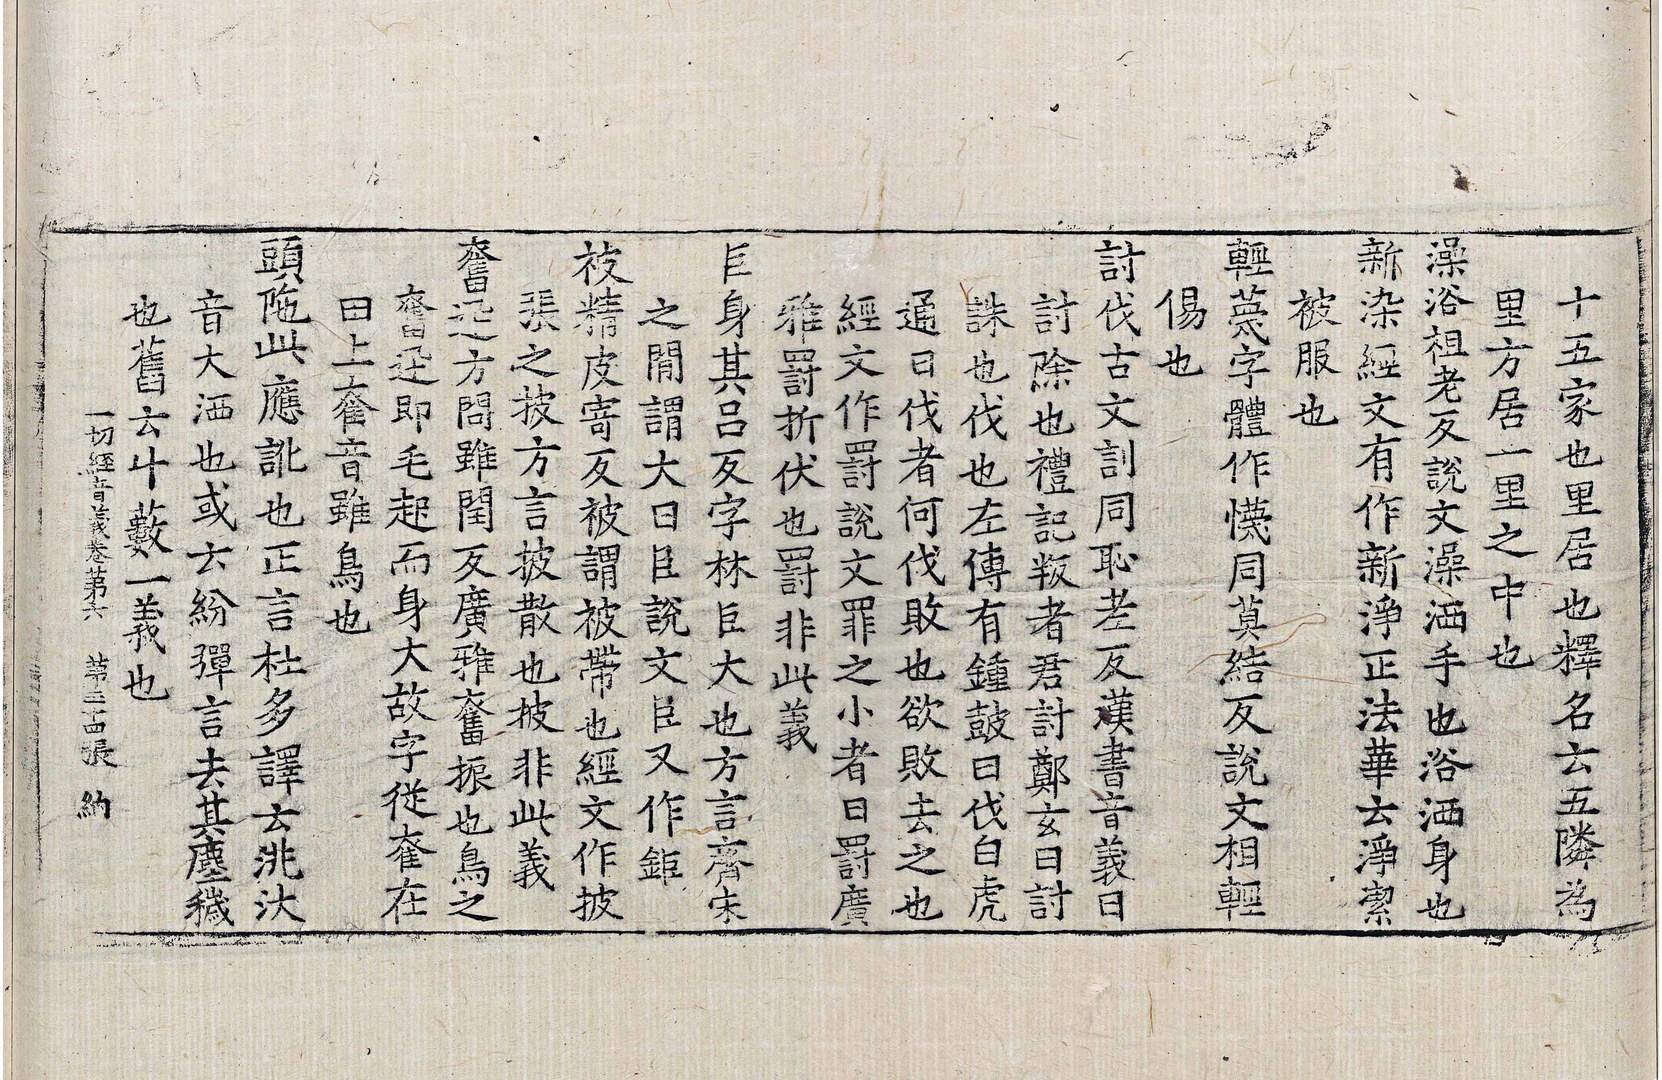 十五家也里居也釋名云五隣為
里方居一里之中也
澡浴祖老反說文澡洒手也浴洒身也
新染經文有作新淨正法華云淨潔
被服也
輕蔑字體作懱同莫結反說文相輕
傷也
討伐古文訓同恥老反漢書音義曰
討除也禮記叛者君討鄭玄曰討
誅也伐也左傳有鍾鼓曰伐白虎
通曰伐者何伐敗也欲敗去之也
經文作罸說文罪之小者曰罸廣
雅罸折伏也罸非此義
巨身其呂反字林巨大也方言齊宋
之閒謂大曰巨說文巨又作鉅
被精皮寄反被謂被帶也經文作披
張之披方言披散也披非此義
奮迅方問雖閏反廣雅奮振也鳥之
奮迅即毛起而身大故字從奞在
田上奞音雖鳥也
頭陁此應訛也正言杜多譯云洮汰
音大洒也或云紛彈言去其塵穢
也舊云斗藪一義也
一切經音義卷第六 第三十四張 納